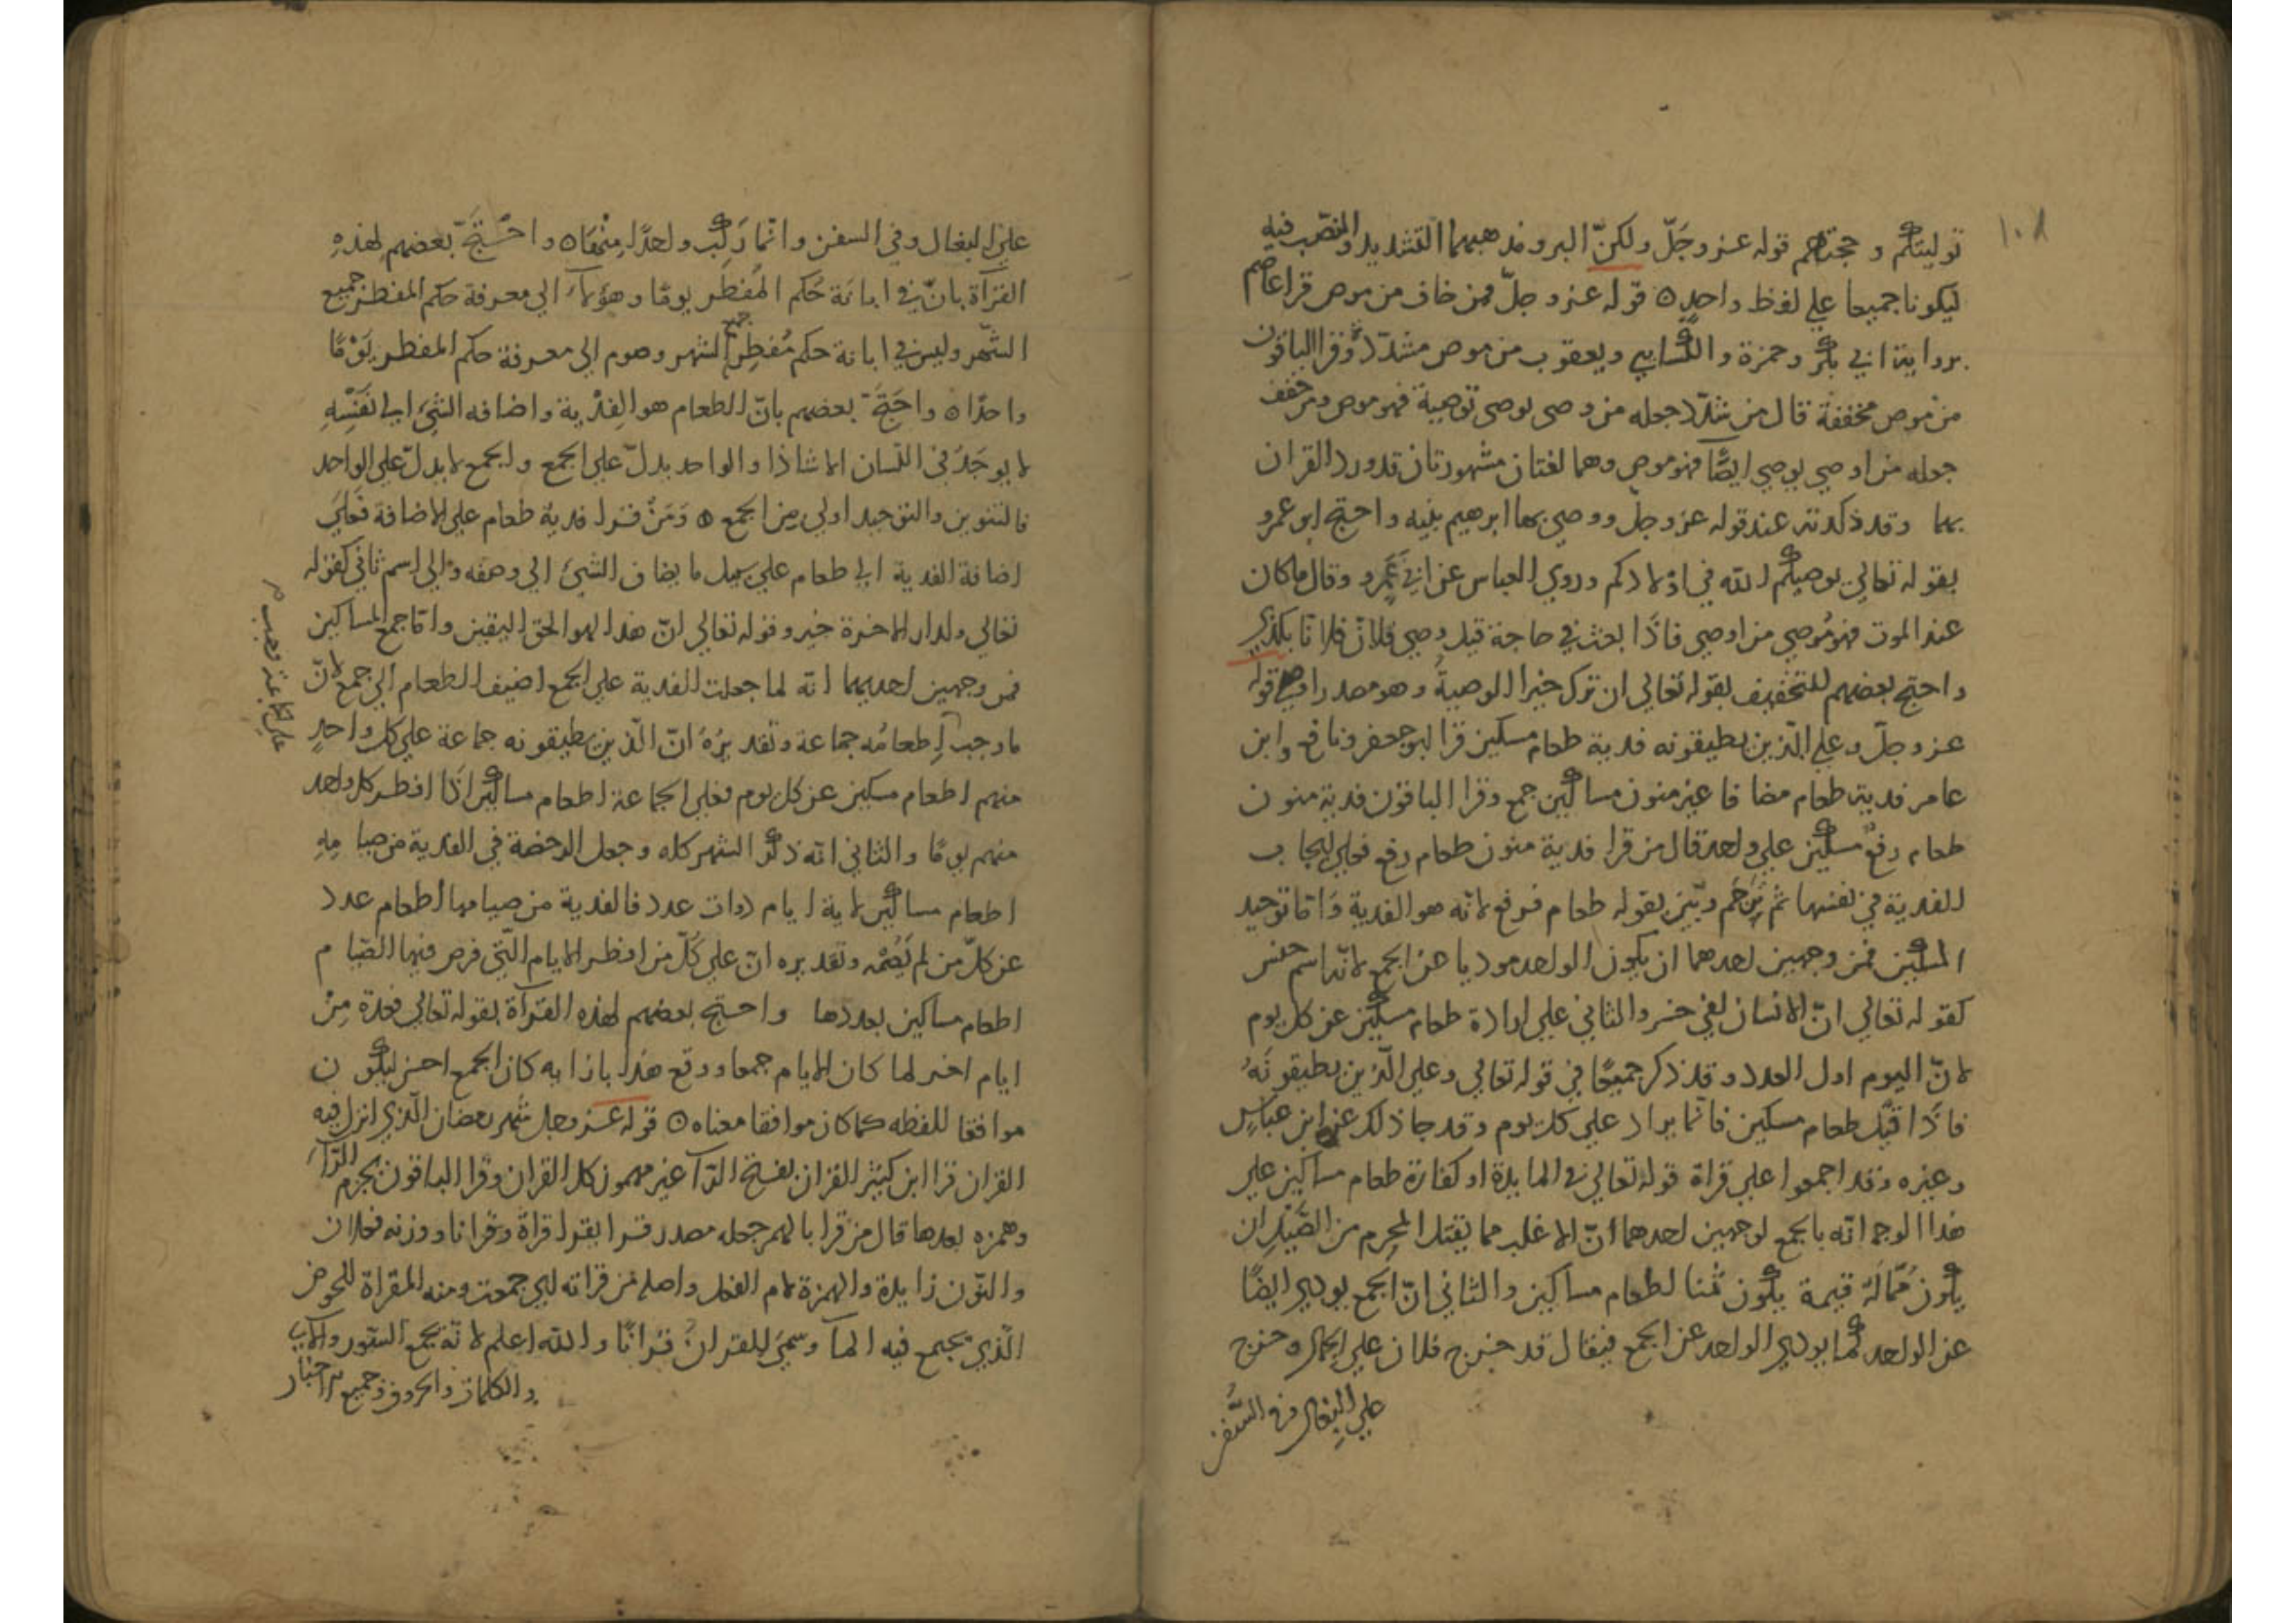 ١٠٨
توليتكم وحجتهم قوله عز وجل ولكنّ البر ومذهبهما التشديد والنصب فيه
ليكونا جميعا علي لفظ واحد ه قوله عز وجلّ فمن خاف من موص قرا عاصم
برواية ابي بكر وحمزة والكسايي ويعقوب من موص مشدّد وقرا الباقون
من موص مخففة قال من شدّد جعله من وصى يوصى توصية فهو موص ومن خفف
جعله من اوصي يوصي ايضًا فهو موص وهما لغتان مشهورتان قد ورد القران
بهما وقد ذكرته عند قوله عز وجلّ ووصي بها ابرهيم بنيه واحتج ابو عمرو
بقوله تعالي يوصيكم الله في اولادكم وروي العباس عن ابي عمرو وقال ما كان
عند الموت فهو مُوصي من اوصي فاذا بعث في حاجة قيل وصي فلانٌ فلانًا بكذي
واحتج بعضهم للتخفيف بقوله تعالي ان ترك خيرا الوصيةُ وهو مصدر اوصي قوله
عز وجلّ وعلي الّذين يطيقونه فدية طعام مسكين قرا ابو جعفر ونافع وابن
عامر فدية طعام مضافا غير منون مساكين جمع وقرا الباقون فدية منون
طعام رفع مسكين علي ولحد قال من قرا فدية منون طعام رفع فعلي ايجاب
الفدية في نفسها ثم ترجم وبيّن بقوله طعام فرفع لانّه هو الفدية وامّا توحيد
المسكين فمن وجهين لحدهما ان يكون الولحد موديا عن الجمع لانّه اسم جنس
كقوله تعالي انّ الانسان لفي خسر والثاني علي ارادة طعام مسكين عن كل يوم
لانّ اليوم اول العدد وقد ذكر جميعًا في قوله تعالي وعلي الّذين يطيقونَهُ
فاذا قيل طعام مسكين فانّما يراد علي كل يوم وقد جا ذلك عن ابن عباسٍ
وغيره وقد اجمعوا علي قراة قوله تعالي في المايدة او كفارة طعام مساكين علي
هذا الوجه انّه بالجمع لوجهين لحدهما انّ الاغلب مما يقتل المحرم من الصَّيْدِ ان
يكون ممّا لَهُ قيمة يكون ثمنا لطعام مساكين والثاني انّ الجمع يودي ايضًا
عن الولحد كما يودي الولحد عن الجمع فيقال قد خرج فلان علي الجمال وخرج
علي البِغال في السُّفن
علي البغال وفي السفن وانّما رَكِب ولحدًا مِنْهَا ه واحْتَجَّ بعضهم لهذهِ
القرآة بانّ في ابانة حُكم المُفطر يومًا وهو لا الي معرفة حكم المفطر جميع
الشّهر وليس في ابانة حكم مُفطِر جميع الشهر وصوم الي معرفة حكم المفطر يَوْمًا
واحدًا ه واحتَجَّ بعضهم بانّ الطعام هو الفِدْية واضافه الشئ الي نَفْسِهِ
لا يوجَدُ في اللسان الا شاذا والواحد يدلّ علي الجمع والجمع لا يدلّ علي الواحد
فالتنوين والتوحيد اولي من الجمع ه وَمَنْ قرا فدية طعام علي الاضافة فَعَلي
اضافة الفدية الي طعام علي سبيل ما يضاف الشئ الي وصفه والي اسم ثاني كقوله
تعالي ولدار الاخرة خير وقوله تعالي انّ هذا لهو الحق اليقين وامّا جمع المساكين
فمن وجهين لحديهما انّه لما جعلت الفدية علي الجمع اضيف الطعام الي جمع لانّ
ما وجب اِطعامُه جماعة وتقديرُهُ انّ الّذين يطيقونه جماعة علي كل واحدٍ
علي جماعة وجب
منهم اطعام مسكين عن كل يوم فعلي الجماعة اطعام مساكين اذا افطر كل ولحد
منهم يومًا والثاني انّه ذكر الشهر كله وجعل الرخصة في الفدية من صيامِهِ
اطعام مساكين لاية ايام ذوات عدد فالفدية من صيامها اطعام عدد
عن كلّ من لم يَصُمْه وتقديره انّ علي كُلّ من افطر الايام الّتي فرض فيها الصّيام
اطعام مساكين بعددها واحتج بعضهم لهذه القرآة بقوله تعالي فعدة مِنْ
ايام اخر لما كان الايام جمعا ووقع هذا بازايه كان الجمع احسن ليكون
موافقا للفظه كما كان موافقا معناه ه قوله عز وجل شهر رمضان الّذي انزل فيه
القران قرا ابن كثير القران بفتح الرّآ غير مهموز كل القران وقرا الباقون بجزم الرّآ
وهمزه بعدها قال من قرا بالهمز جعله مصدر قرا يقرا قراةً وقُرانا ووزنه فعلان
والنّون زايدة والهمزة لام الفعل واصله من قراته اي جمعت ومنه المقراة للحوض
الّذي يجتمع فيه المآ وسمّيَ القران قرانًا والله اعلم لانّه يجمع السّور والاي
والكلمات والحروف وجميع الاخبار